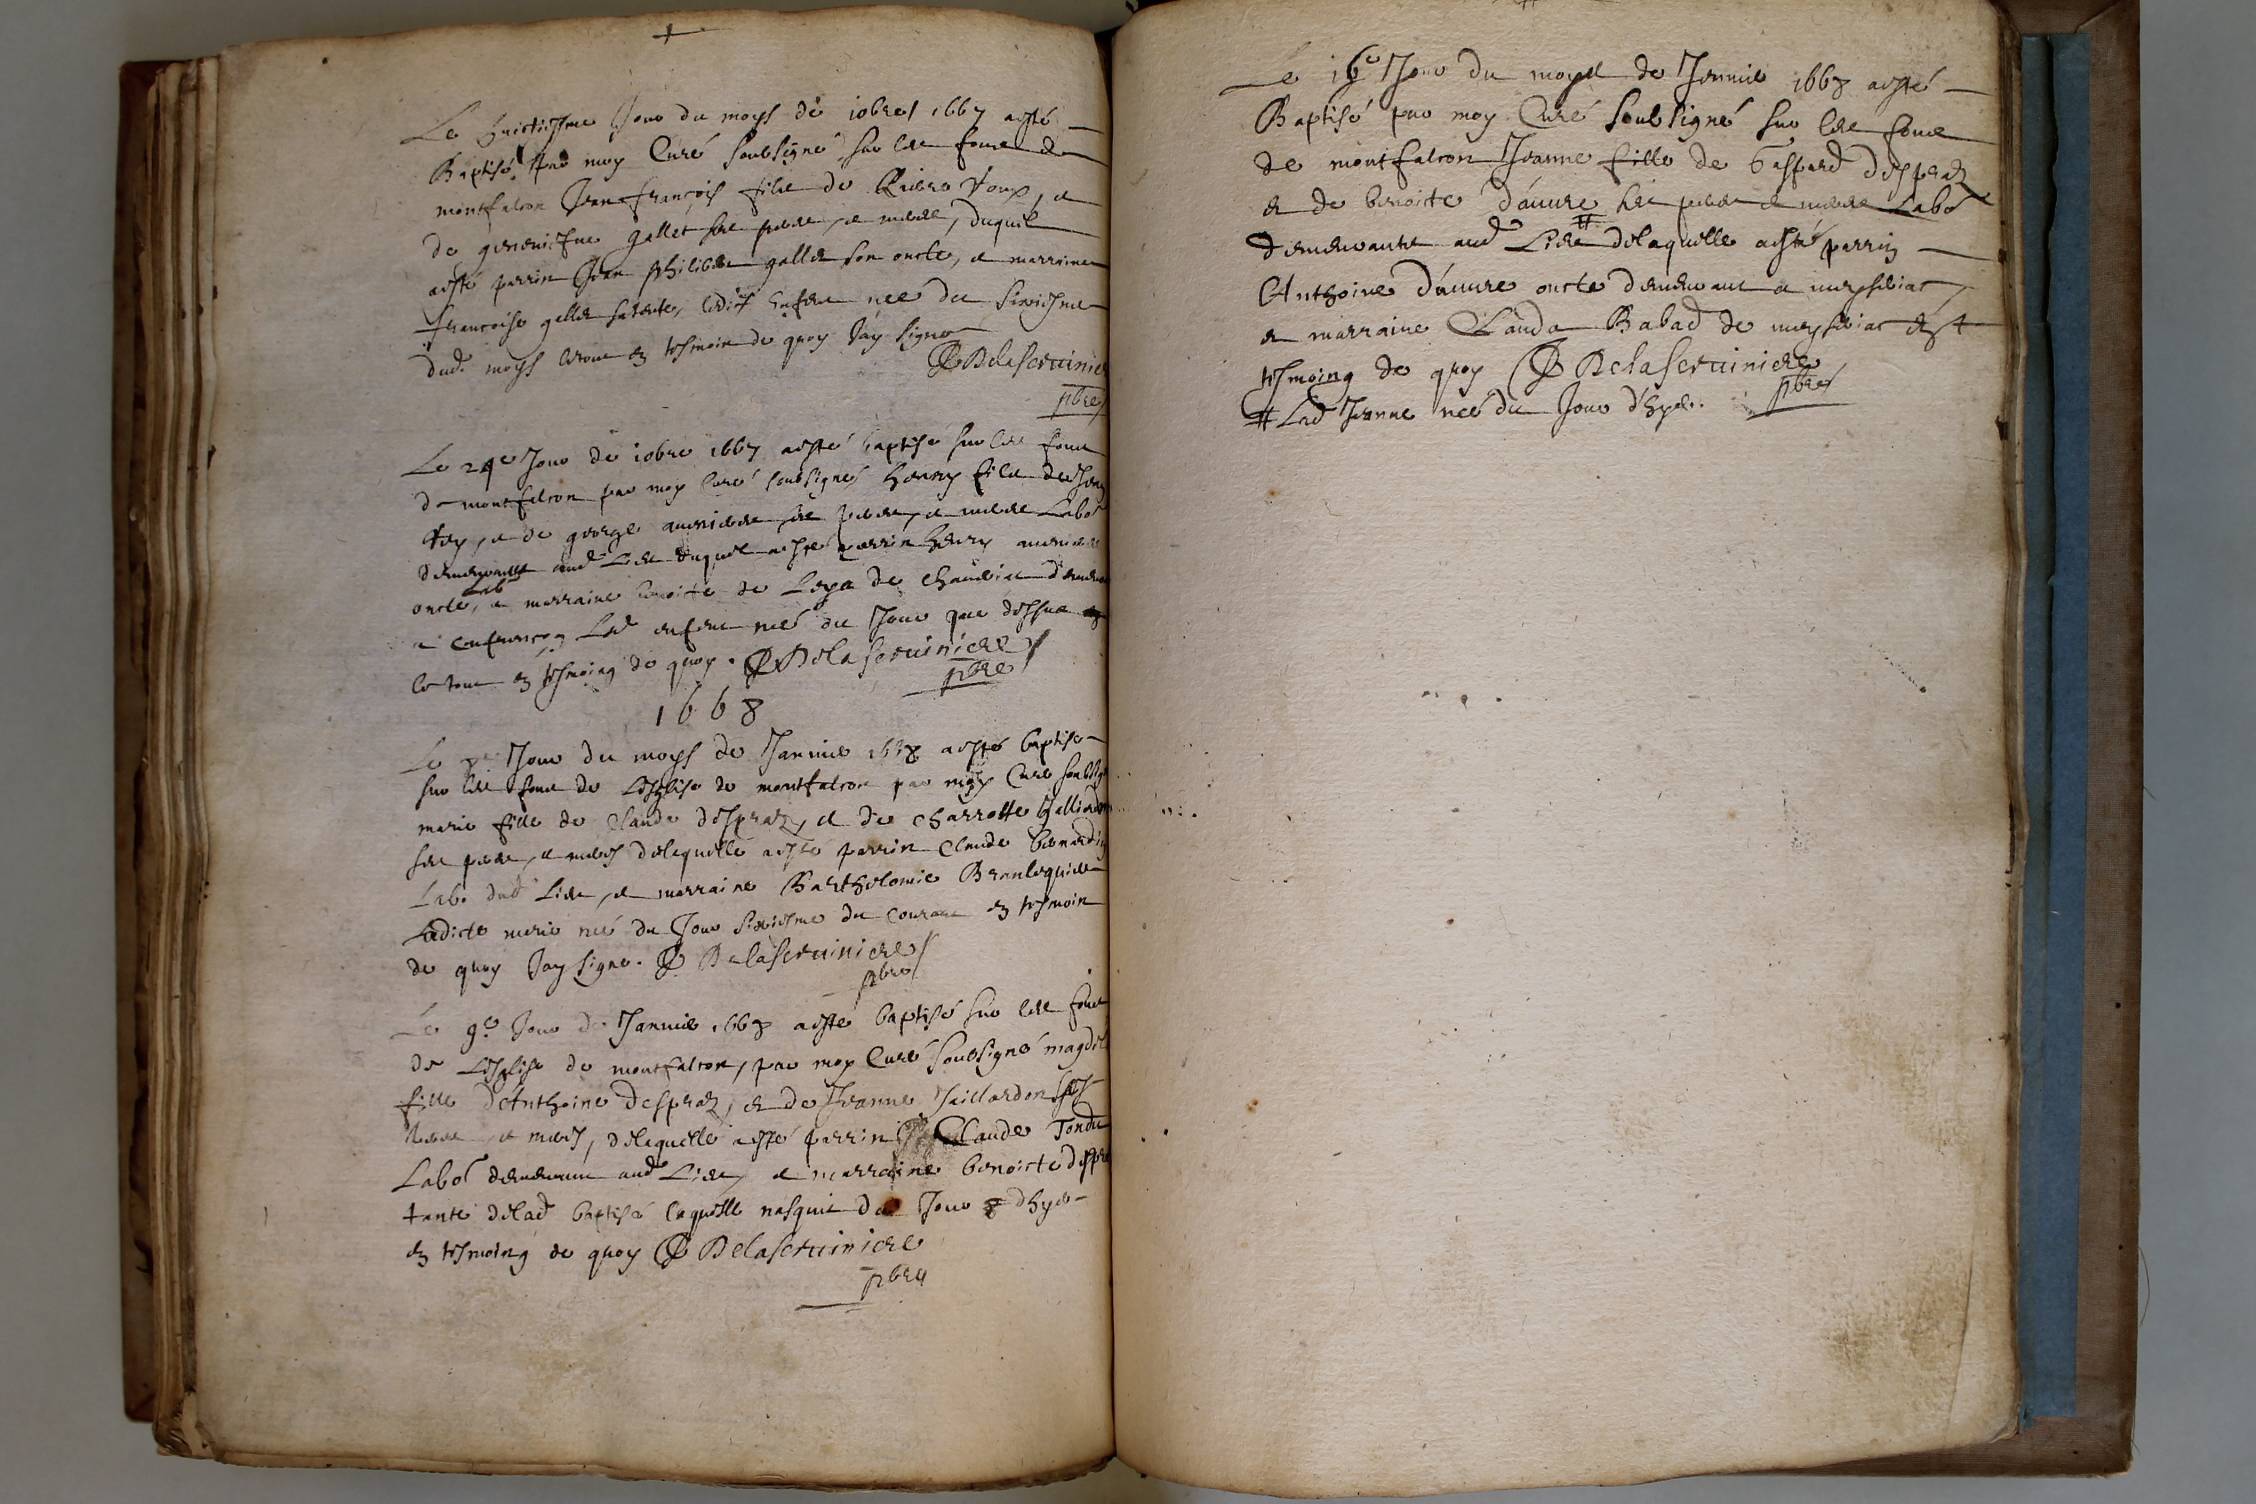 Le huictiesme Jour du moys de 10bre 1667 a esté
Baptisé par moy Curé soubsigné sur les fons de
montfalcon Jean françois filz de Pierre Foux, et
de genevefve gallet ses pere, et mere, duquel
a esté parrin Jean philibert gallet son oncle, et marraine
françoise gallet sa tente, ledit Enfent nee du sixiesme
dud. moys le tout en tesmoin de quoy Jay signe
Delaserviniere
pbre
Le 24e Jour de 10bre 1667 a esté baptisé sur les fons
de montfalcon par moy Curé soubsigné henry filz de Jean
et de george ses pere, et mere Labor
demeurants aud Lieu duquel a esté parrin henry
oncle, et marraine benoite de Leya de
a confrançon Led enfent neé du Jour que dessus
le tout en tesmoing de quoy. Delaserviniere
pbre
1668
Le Jour du moys de Janvier 1668 a esté baptise
sur les fons de Lesglise de montfalcon par moy Curé soubsig
marie fille de Claude despraz, et de charrotte galliard
ses pere, et meres delaquelle a esté parrin Claude bernardi
Lab. dud Lieu, et marraine Bartholomie Branlequier
Ladicte marie neé du Jour sixiesme du courant en tesmoin
de quoy Jay signe. Delaserviniere
pbre
Le 9e Jour de Janvier 1668 a esté baptisé sur les fons
de Lesglise de montfalcon, par moy Curé soubsigné magdel
fille d'Anthoine despraz, et de Jeanne Taillardon ses
pere et meres, delaquelle a esté parrin Claude Tondu
Labor demeurant aud Lieu, et marraine benoicte despra
tante delad baptisé laquelle nasquit du Jour 8 d'hyer
en tesmoing de quoy Delaserviniere
pbre
Le 16e Jour du moys de Janvier 1668 a esté
Baptisé par moy Curé soubsigné sur les fons
de montfalcon Jeanne fille de Gaspard despraz
et de benoite d'auvre ses pere et mere Labor
demeurants aud Lieu # delaquelle a esté parrin
Anthoine d'auvre oncle demeurant a meyseriat,
et marraine Clauda Babad de meyseriat
tesmoing de quoy Delaserviniere
pbre
# Lad Jeanne neé du Jour d'hyer.